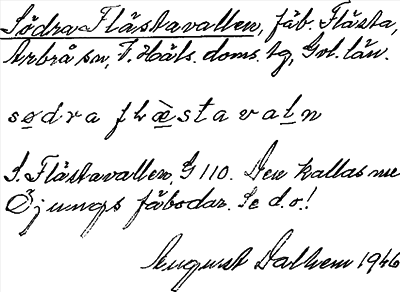 Södra Flästavallen, fäb. Flästa,
Arbrå sn, V. Häls. doms. tg, Gvl. län.
sødra flæstavaln
S. Flästavallen, G 110. Den kallas nu
Sjunops fäbodar. Se d.o.!
August Dalhem 1946